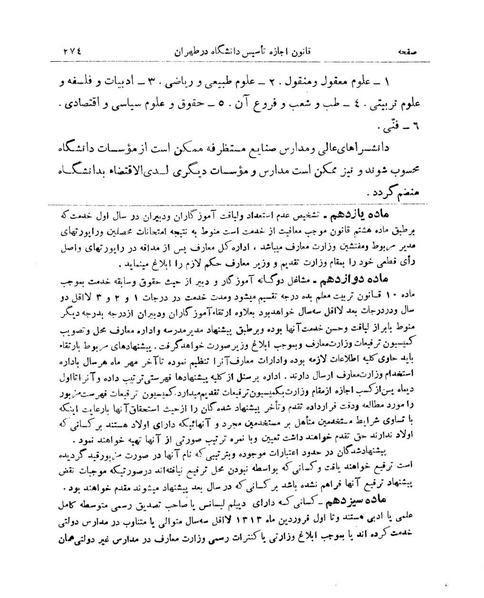 صفحه قانون اجازه تأسیس دانشگاه در طهران ۲۷۴
۱ ــ علوم معقول ومنقول . ۲ ــ علوم طبیعی و ریاضی . ۳ ــ ادبیات و فلسفه و
علوم تربیتی . ٤ ــ طب و شعب و فروع آن . ۵ ــ حقوق و علوم سیاسی و اقتصادی .
٦ ــ فنّی .
دانشسراهای عالی ومدارس صنایع مستظرفه ممکن است از مؤسسات دانشگاه
محسوب شوند و نیز ممکن است مدارس و مؤسسات دیگری لدی‌الاقتضاء بدانشگاه
منضم گردد .
ماده یازدهم ــ تشخیص عدم استعداد ولیاقت آموزگاران ودبیران در سال اول خدمت که
برطبق ماده هشتم قانون موجب معافیت از خدمت است منوط به نتیجه امتحانات محصلین وراپورتهای
مدیر مربوط ومفتشین وزارت معارف میباشد ، اداره کل معارف پس از مداقه در راپورتهای واصل
رأی قطعی خود را بمقام وزارت تقدیم و وزیر معارف حکم لازم را ابلاغ مینماید .
ماده دوازدهم ــ مشاغل دوگانه آموزگار و دبیر از حیث حقوق وسابقه خدمت بموجب
ماده ۱۰ قانون تربیت معلم بده درجه تقسیم میشود ومدت خدمت در درجات ۱ و ۲ و ۳ لااقل دو
سال ودردرجات بعد لااقل سه‌سال خواهدبود بعلاوه ارتقاء آموزگاران ودبیران ازدرجه بدرجه دیگر
منوط بابراز لیاقت وحسن خدمت آنها بوده وبرطبق پیشنهاد مدیرمدرسه واداره معارف محل وتصویب
کمیسیون ترفیعات وزارت‌معارف وبموجب ابلاغ وزیرصورت خواهدگرفت . پیشنهادهای مربوط بارتقاء
باید حاوی کلیه اطلاعات لازمه بوده وادارات معارف آنرا تنظیم نموده تاآخر مهر ماه هرسال باداره
استخدام وزارت‌معارف ارسال دارند . اداره پرسنل از کلیه پیشنهادها فهرستی ترتیب داده وآنرا تااول
دیماه پس‌ازکسب اجازه ازمقام وزارت بکمیسیون ترفیعات تقدیم میدارد. کمیسیون ترفیعات فهرست مزبور
را مورد مطالعه ودقت قرارداده تقدم وتأخر پیشنهاد شده‌گان را ازحیث استحقاق آنها بارعایت اینکه
با تساوی شرایط مستخدمین متأهل بر مستخدمین مجرد و آنهائیکه دارای اولاد هستند بر کسانی که
اولاد ندارند حق تقدم خواهند داشت تعیین وبا نمره ترتیب صورتی از آنها تهیه خواهند نمود .
پیشنهادشدگان در حدود اعتبارات موجوده وبترتیبی که نام آنها در صورت مزبورقید گردیده
است ترفیع خواهند یافت و کسانی که بواسطه نبودن محل ترفیع نیافته‌اند درصورتیکه موجبات نقض
پیشنهاد ترفیع آنها فراهم نشده باشد بر کسانی که در سال بعد پیشنهاد میشوند مقدم خواهند بود .
ماده سیزدهم ــ کسانی که دارای دیپلم لیسانس یا صاحب تصدیق رسمی متوسطه کامل
علمی یا ادبی هستند وتا اول فروردین ماه ۱۳۱۳ لااقل سه‌سال متوالی یا متناوب در مدارس دولتی
خدمت کرده اند یا بموجب ابلاغ وزارتی یا کنترات رسمی وزارت معارف در مدارس غیر دولتی همان